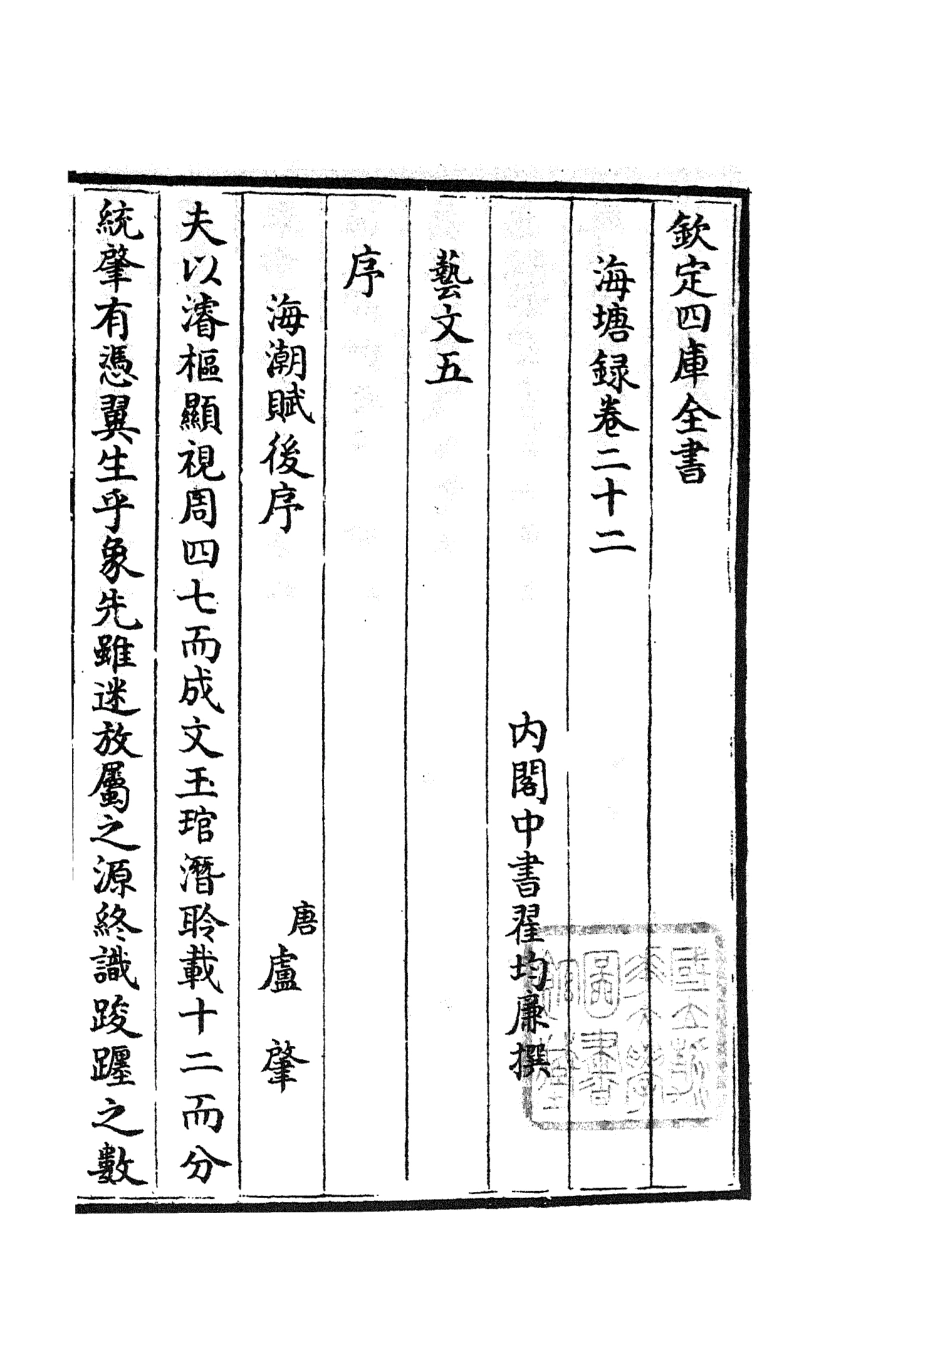 欽定四庫全書
海塘録卷二十二
内閣中書翟均廉撰
藝文五
序
海潮賦後序
唐盧肇
夫以濬樞顯視周四七而成文玉琯潛聆載十二而分
統肇有憑翼生乎象先雖迷放屬之源終識踆躔之數